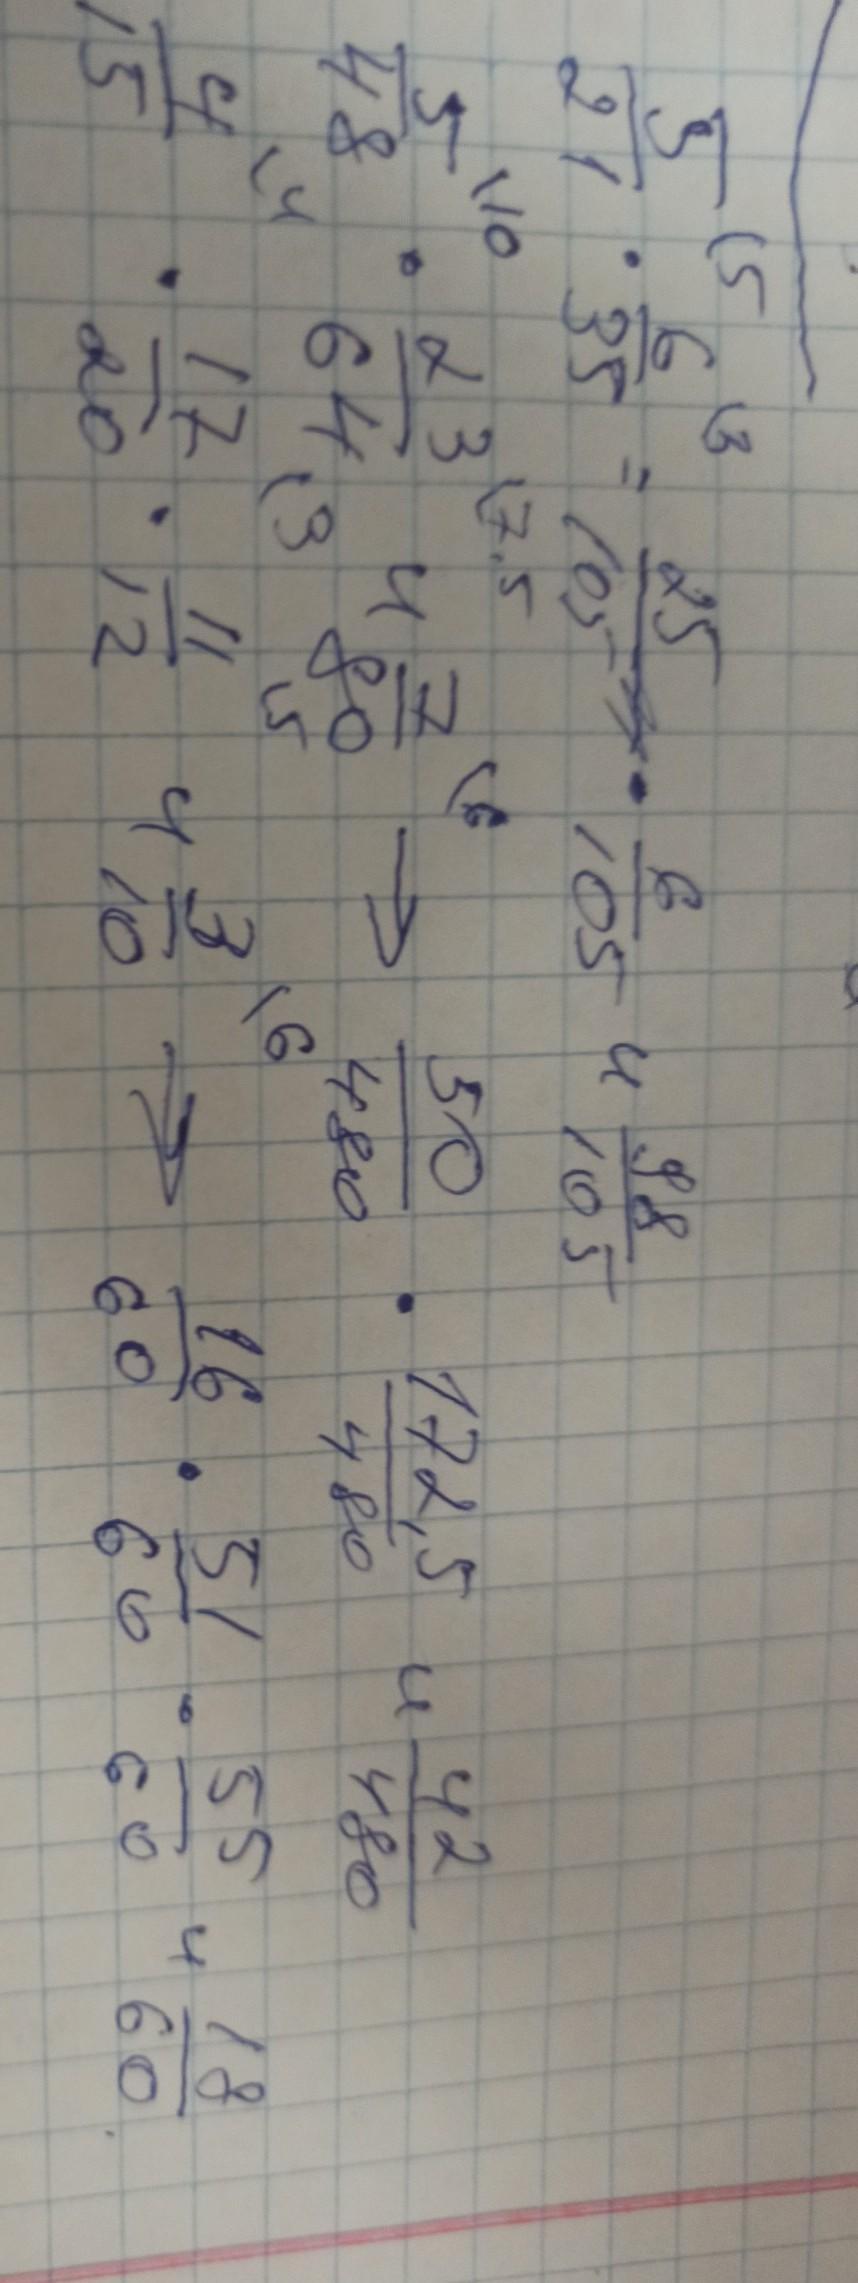 5/21 \5 · 6/35 \3 = 25/105 · 6/105 и 98/105
5/48 \10 · 23/64 \7,5 и 7/80 \6 → 50/480 · 172,5/480 и 42/480
4/15 \4 · 17/20 \3 · 11/12 \5 и 3/10 \6 → 16/60 · 51/60 · 55/60 и 18/60